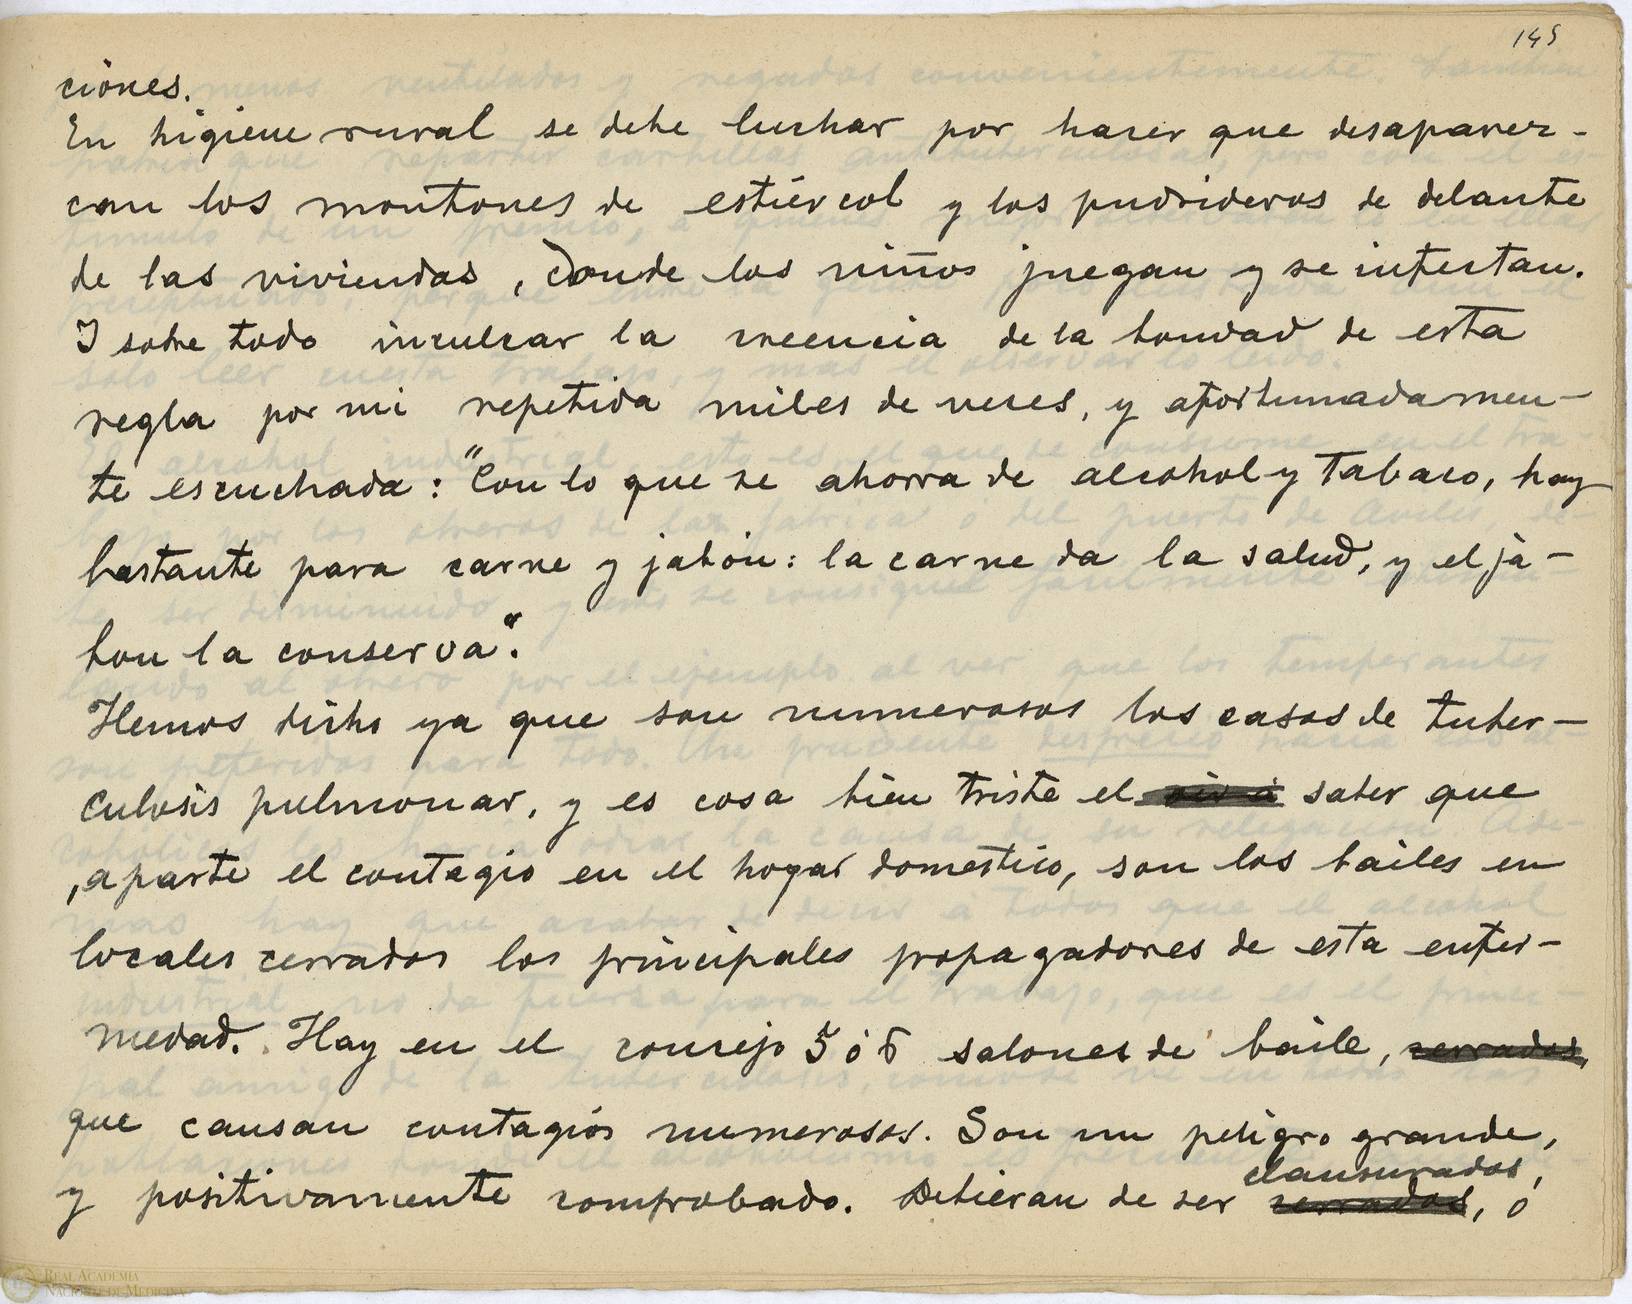 145
ciones.
En higiene rural se debe luchar por hacer que desaparez-
can los montones de estiércol y los pudrideros de delante
de las viviendas, donde los niños juegan y se infectan.
I sobre todo inculcar la creencia de la bondad de esta
regla por mi repetida miles de veces, y afortunadamen-
te escuchada: "Con lo que se ahorra de alcohol y tabaco, hay
bastante para carne y jabón: la carne da la salud, y el ja-
bon la conserva".
Hemos dicho ya que son numerosos los casos de tuber-
culosis pulmonar, y es cosa bien triste el saber que
, aparte el contagio en el hogar domestico, son los bailes en
locales cerrados los principales propagadores de esta enfer-
medad. Hay en el consejo 5 ó 6 salones de baile, cerrados,
que causan contagios numerosos. Son un peligro grande,
y positivamente comprobado. Debieran de ser cerrados, ó
clausurados,
REAL ACADEMIA
NACIONAL DE MEDICINA